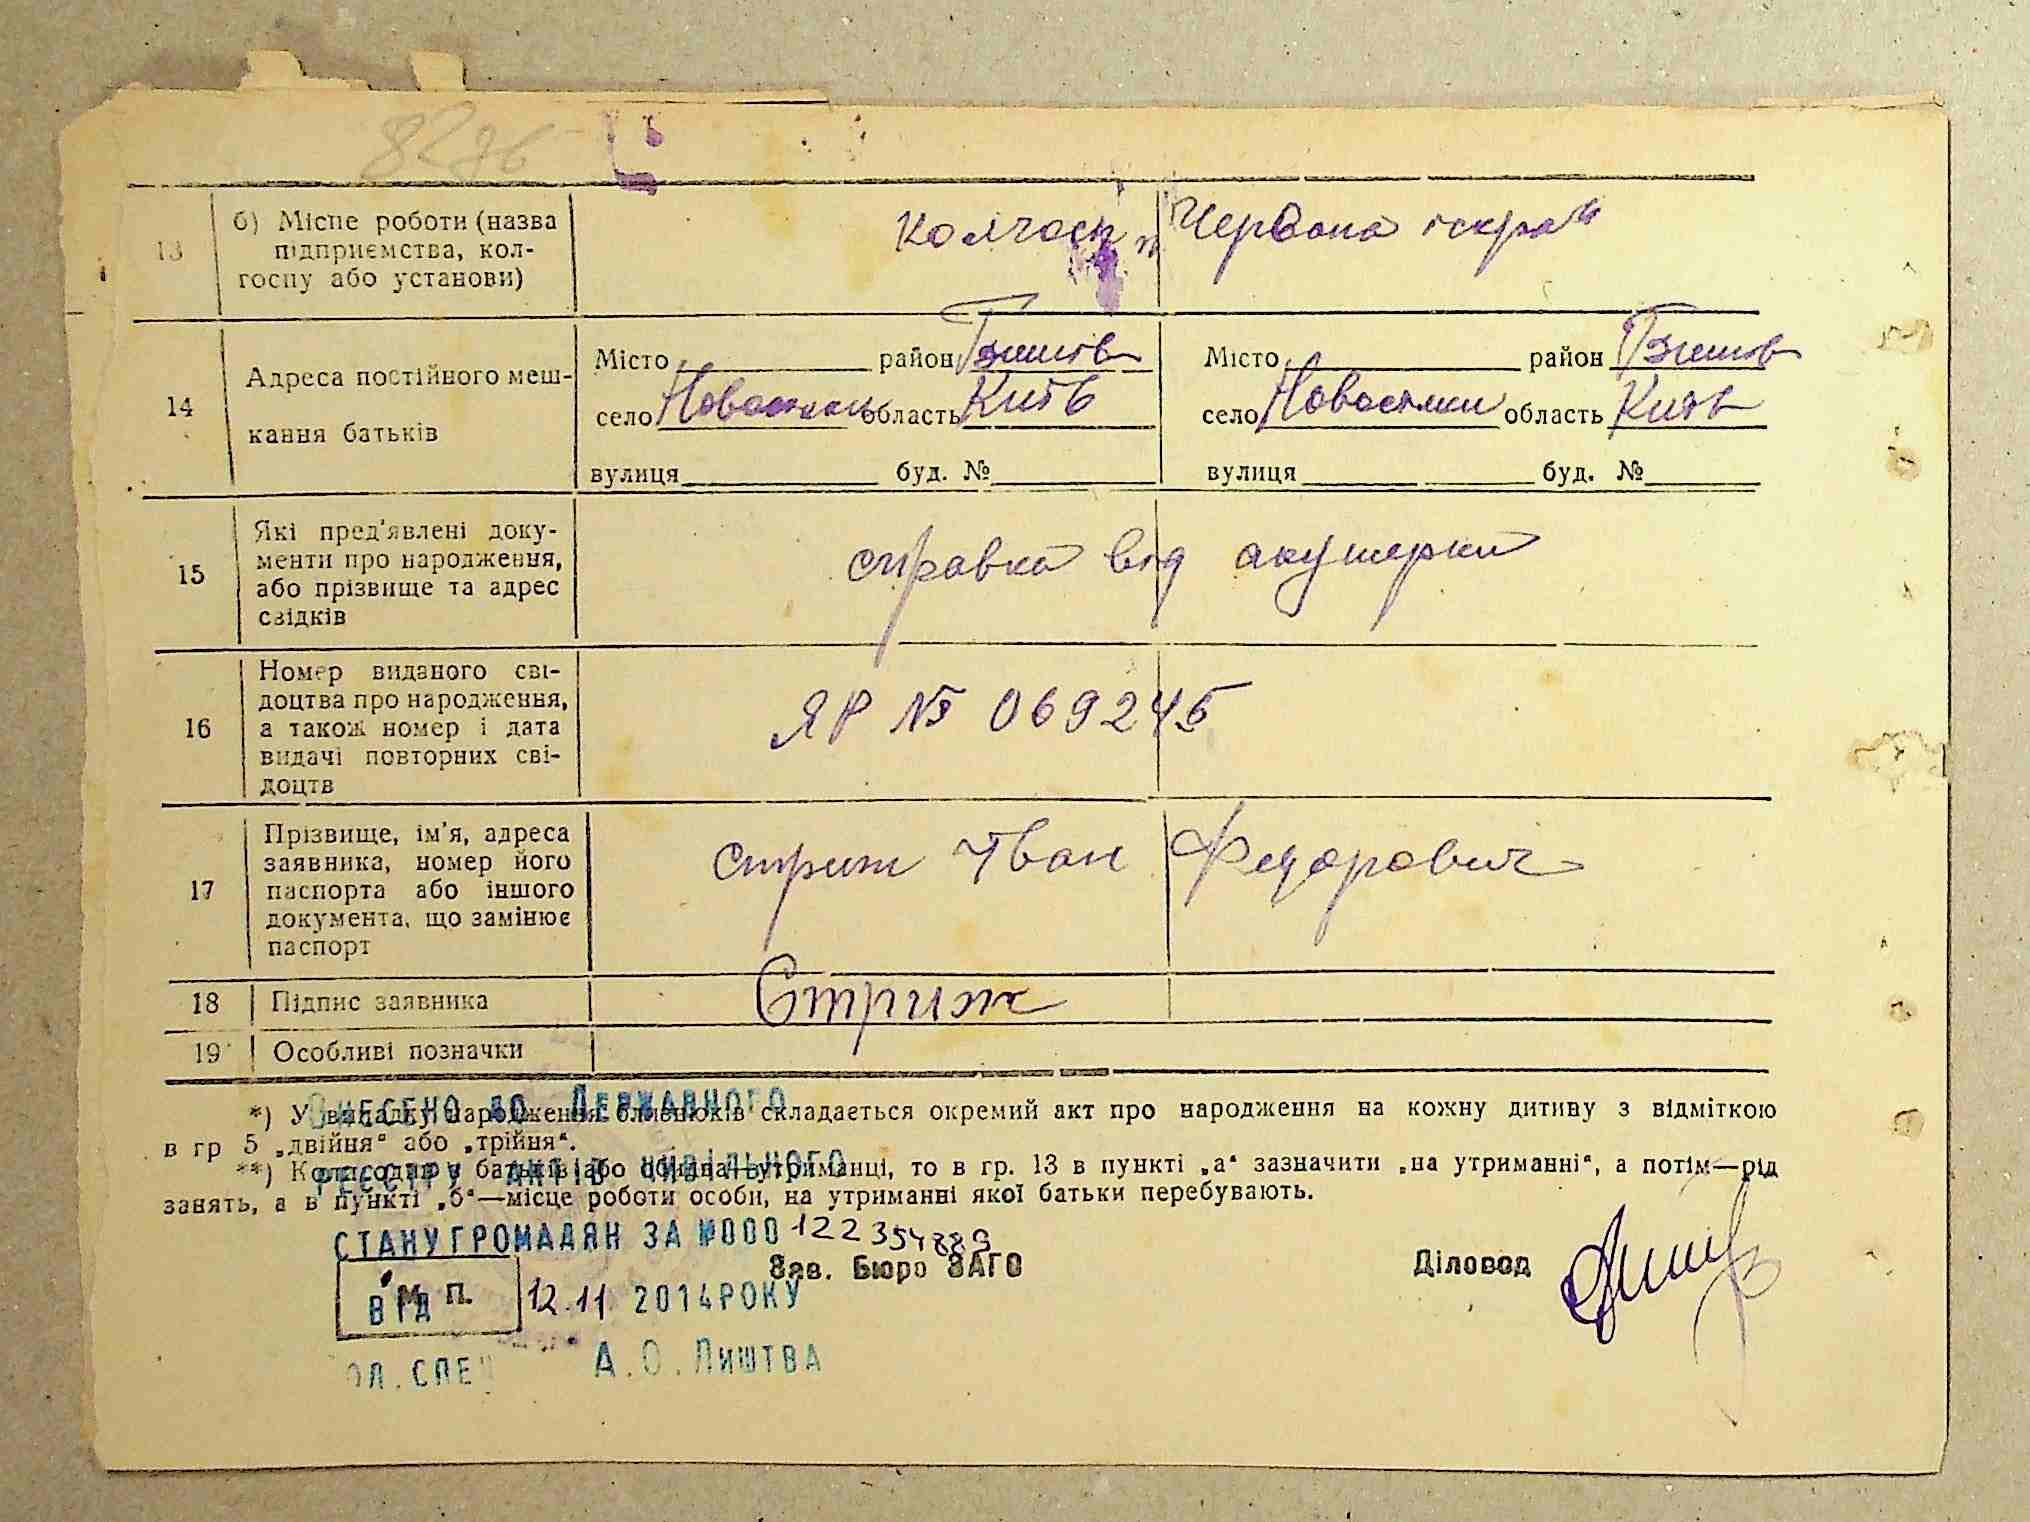 8286
13
б) Місце роботи (назва
підприємства, кол-
госпу або установи)
Колгосп „Червона іскра“
14
Адреса постійного меш-
кання батьків
Місто район
село Новосілки область Київ
вулиця буд. №
Місто район
село Новосілки область Київ
вулиця буд. №
15
Які пред'явлені доку-
менти про народження,
або прізвище та адрес
свідків
справка від акушерки
16
Номер виданого сві-
доцтва про народження,
а також номер і дата
видачі повторних сві-
доцтв
ЯР № 069245
17
Прізвище, ім'я, адреса
заявника, номер його
паспорта або іншого
документа, що замінює
паспорт
Стриж Іван Федорович
18
Підпис заявника
Стриж
19
Особливі позначки
*) У випадку народження близнюків складається окремий акт про народження на кожну дитину з відміткою
в гр 5 „двійня“ або „трійня“.
**) Коли один з батьків або обидва—утриманці, то в гр. 13 в пункті „а“ зазначити „на утриманні“, а потім—рід
занять, а в пункті „б“—місце роботи особи, на утриманні якої батьки перебувають.
ВНЕСЕНО ДО ДЕРЖАВНОГО
РЕЄСТРУ АКТІВ ЦИВІЛЬНОГО
СТАНУ ГРОМАДЯН ЗА №000 122354889
ВІД 12.11 2014РОКУ
ГОЛ.СПЕЦ А.О.ЛИШТВА
М. П.
Зав. Бюро ЗАГС
Діловод